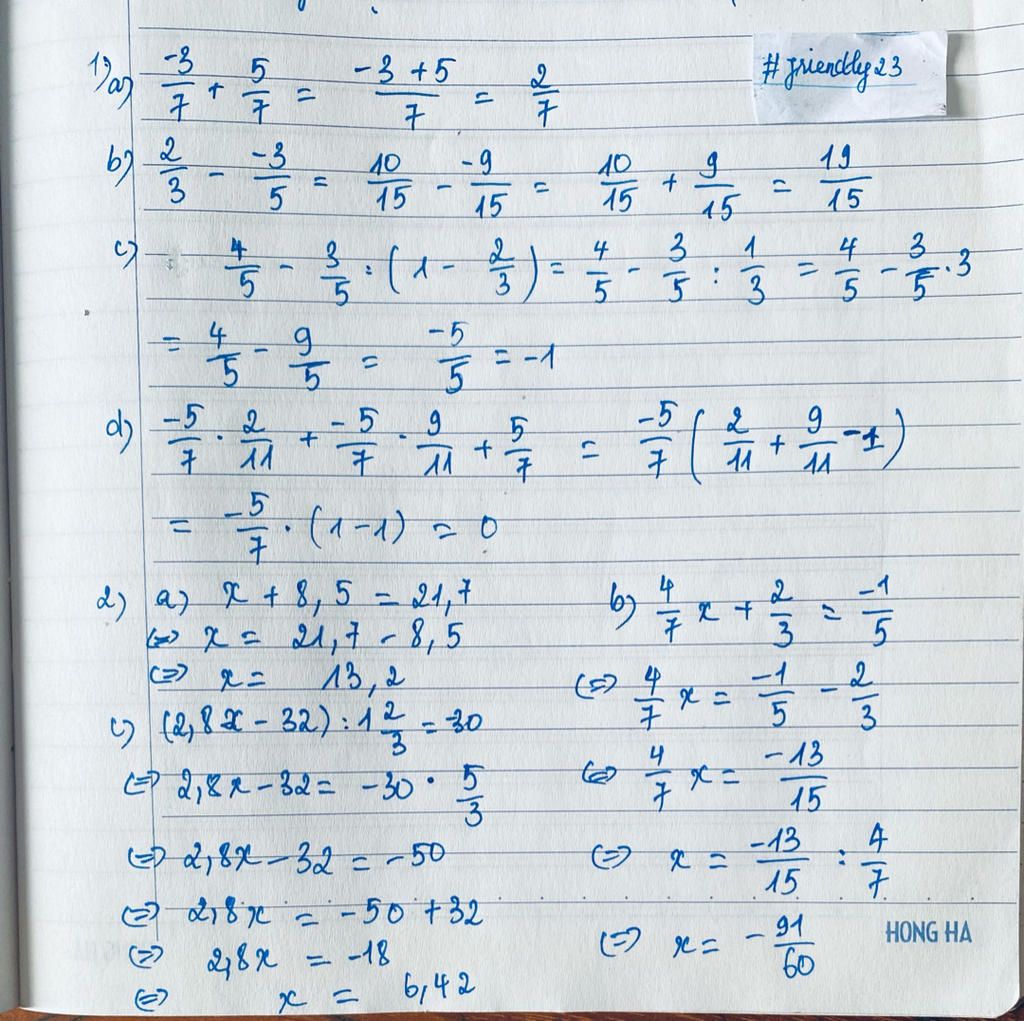 #friendly23
1) a) -3/7 + 5/7 = (-3+5)/7 = 2/7
b) 2/3 - -3/5 = 10/15 - -9/15 = 10/15 + 9/15 = 19/15
c) 4/5 - 3/5 : (1 - 2/3) = 4/5 - 3/5 : 1/3 = 4/5 - 3/5 . 3
= 4/5 - 9/5 = -5/5 = -1
d) -5/7 . 2/11 + -5/7 . 9/11 + 5/7 = -5/7 (2/11 + 9/11 - 1)
= -5/7 . (1-1) = 0
2) a) x + 8,5 = 21,7
<=> x = 21,7 - 8,5
<=> x = 13,2
b) 4/7 x + 2/3 = -1/5
<=> 4/7 x = -1/5 - 2/3
<=> 4/7 x = -13/15
<=> x = -13/15 : 4/7
<=> x = -91/60
c) (2,8x - 32) : 1 2/3 = -30
<=> 2,8x - 32 = -30 . 5/3
<=> 2,8x - 32 = -50
<=> 2,8x = -50 + 32
<=> 2,8x = -18
<=> x = 6,42
HONG HA